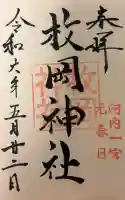 奉拝
河内一宮
元春日
枚岡神社
令和六年五月廿二日